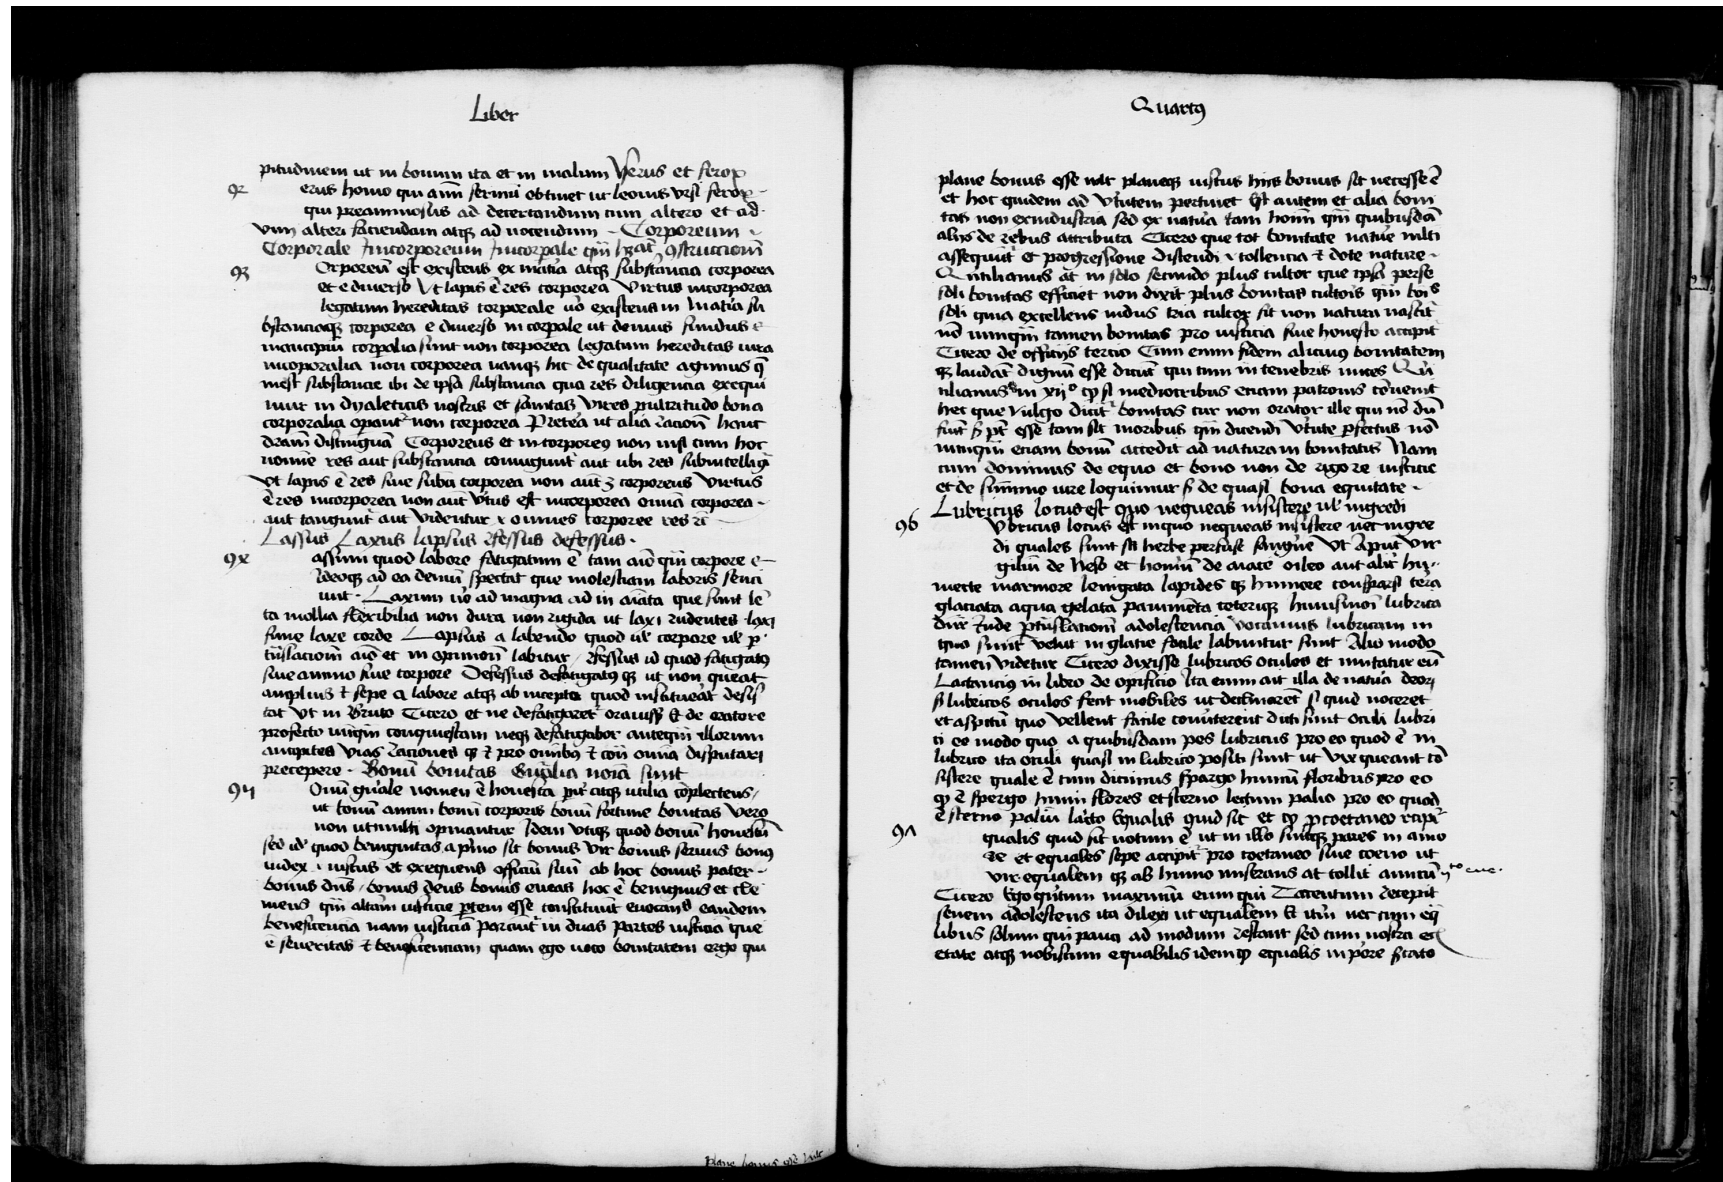 Liber
pitudinem ut in bonum ita et in malum Verus et ferox
92 erus homo qui aīm ferinū obtinet ut leonis vrsi ferox
qui preanimosus ad decertandum cum altero et ad
vim alteri faciendam atqꝫ ad nocendum Corporeum
Corporale Incorporeum Incorpale
93 Orporeū est existens ex matia atqꝫ substancia corporea
et e diuerso Vt lapis ē res corporea Virtus incorporea
legatum hereditas corporale uō existens in matia su
bstanciaqꝫ corporea e diuerso in corpale ut domus fundus
mancipiū corpalia sunt non corporea legatum hereditas iura
incoporalia non corporea namqꝫ hic de qualitate agimus q̄
inest substancie ibi de ipsa substancia qua res diligencia exequi
mur in dyaleticis nostris et sanitas vires pulcritudo bona
corporalia non corporea Pretea ut alia racion haut
dram distinguā Corporeus et incorporeꝰ non nisi cum hoc
nomīe res aut substancia coniugunt aut ubi res subintelligi
Vt lapis ē res siue suba corporea non aut corporeus Virtus
ē res incorporea non aut vtus est incorporea omīa corporea
aut tangunt aut videntur et omnes corporee res
Lassus Laxus lapsus fessus defessus
94 assum quod labore fatigatum ē tam aīo qm corpore
Ideoqꝫ ad ea demū spectat que molestiam laboris senti
unt Laxum uō ad magna ad in aīata que sunt lē
ta mollia flexibilia non dura non rigida ut laxi rudentes laxi
fune laxe corde Lapsus a labendo quod ul corpore ul p
tūslacionē aīo et in opinion labitur fessus id quod fatigatꝰ
siue animo siue corpore Defessus defatigatꝰ qꝫ ut non queat
amplius et sepe a labore atqꝫ ab incepto quod instituerat desis
tat Vt in Bruto Cicero et ne defatigaret Et de oratore
profecto nūqm conquiescam neqꝫ defatigabor anteqm illorum
ancipites vias raciones qꝫ et pro omnibꝰ et con omīa disputari
precepere Bonū bonitas sunt
95 Onū nomen ē honesta atqꝫ utilia cōplectens
ut bonū animi bonū corporis bonū fortune bonitas vero
non ut multi opinantur Idem vtiqꝫ quod bonū honestū
sed id quod benignitas a pīno sit bonus vir bonus seruus bonꝰ
iudex iustus et exequens officiū suū ab hoc bonus pater
bonus dn̄s bonus deus bonus eneas hoc ē benignus et cle
mens qm altam iusticie ptem esse constituūt euocand eandem
beneficencia nam iusticia parciunt in duas partes iusticia que
ē seueritas et beneficenciam quam ego uoco bonitatem ergo qui
plane bonus esse
Quartꝰ
plane bonus esse planeqꝫ iustus hijs bonus sit necesse ē
et hoc quidem ad vtutem pertinet Est autem et alia boni
tas non exindustria sed ex natura tam hoīm qm quibusdā
alijs de rebus attributa Cicero que tot bonitate nature
assequūt et progressione discendi
Quintilianus at in solo fecundo plus cultor que ipsa perse
soli bonitas efficiet non dixit plus bonitas cultoris qm boīs
soli quia excellens nidus tria cultor fit non natura nascit
nō nunqm tamen bonitas pro iusticia siue honesto accipit
Cicero de officijs tercio Cum enim fidem alicuiꝰ bonitatem
qꝫ laudāt dignū esse dicūt qui cum in tenebris mices Qui
tilianus in xijº qꝫ si mediocribus etiam patronis cōuenit
hec que vulgo dicit bonitas cur non orator ille qui nō dū
fuit pt esse tam sit moribus qm dicendi vtute pfectus nō
nunqm etiam bonū accedit ad natura in bonitatis Nam
cum dominus de equo et bono non de rigore iusticie
et de summo iure loquimur de quasi bona equitate
Lubricus locus est quo nequeas insistere ul ingredi
96 vbricus locus est inquo nequeas insistere nec ingre
di quales sunt herbe perfuse sangūe Vt aput vir
giliū de Niso et hoīm de aiace oileo aut alit hu
mecte marmore leuigata lapides qꝫ humore conspersi terra
glaciata aqua gelata pauimēta ceteraqꝫ huiusmoī lubrica
ptūslationē adolescencia vocamus lubricam in
quo sunt velut in glacie facile labuntur sunt Alio modo
tamen videtur Cicero dixisse lubricos oculos et imitatur eū
Lactancius in libro de opificio Ita enim ait illa de natura deorꝫ
lubricos oculos fecit mobiles ut declinarēt si quid noceret
et aspctū quo vellent facile conuerterent dicti sunt oculi lubri
ci eo modo quo a quibusdam pes lubricus pro eo quod ē in
lubrico ita oculi quasi in lubrico positi sunt ut vix queant cō
sistere quale ē cum dicimus spargo humū floribus pro eo
qꝫ ē spergo humi flores et sterno lectum palio pro eo quod
ē sterno paliū lecto Equalis quid sit et qꝫ pcoetaneo
97 qualis quid sit notum ē ut in illo suntqꝫ pares in amo
re et equales sepe accipit pro coetaneo siue coeuo ut
vir equalem qꝫ ab humo miserans at tollit amicū
Cicero Ego quītum maximū eum qui Tarentum recepit
senem adolescens ita dilexi ut equalem Et itm nec cum eq̄
libus solum qui pauci ad modum restant sed cum nostra
etate atqꝫ nobiscum equabilis idem qꝫ equalis